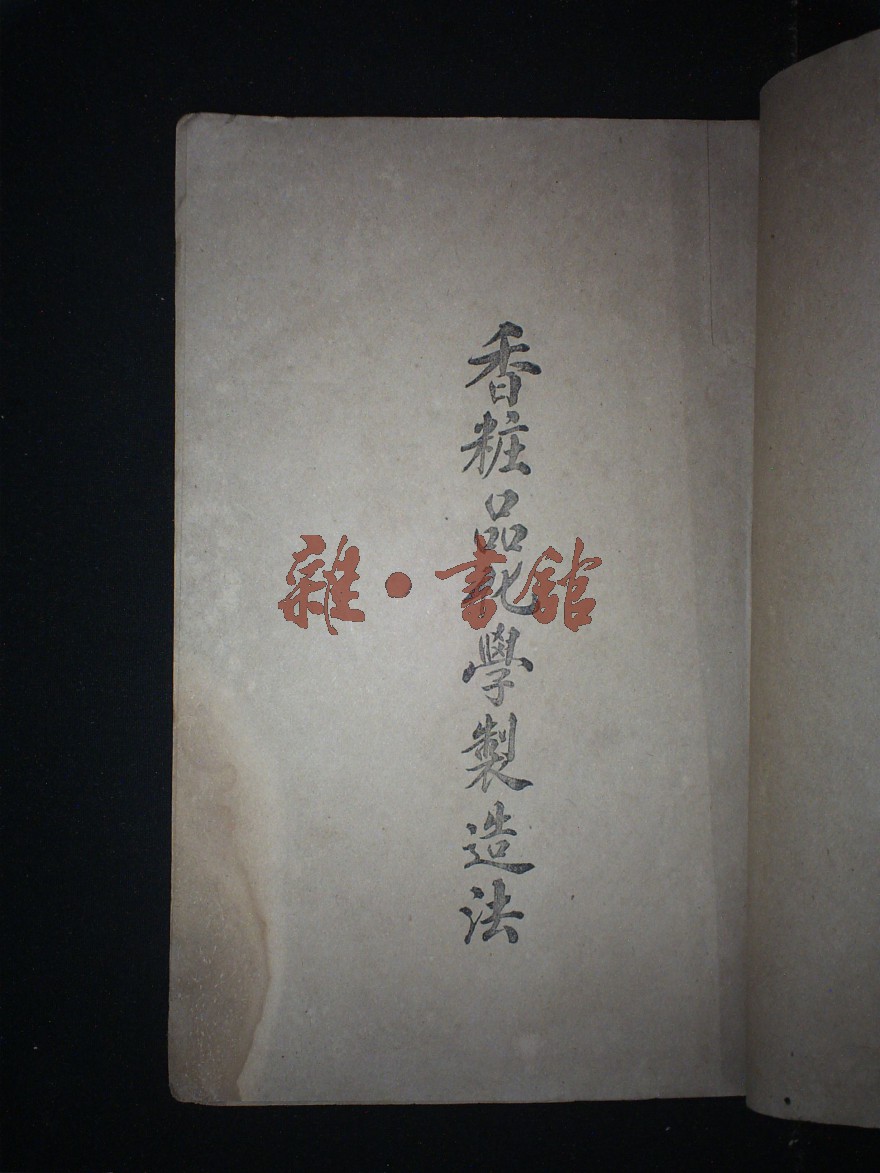 香粧品化學製造法
雜·書館